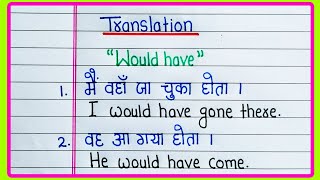 Translation
"Would have"
1. मैं वहाँ जा चुका होता ।
I would have gone there.
2. वह आ गया होता ।
He would have come.